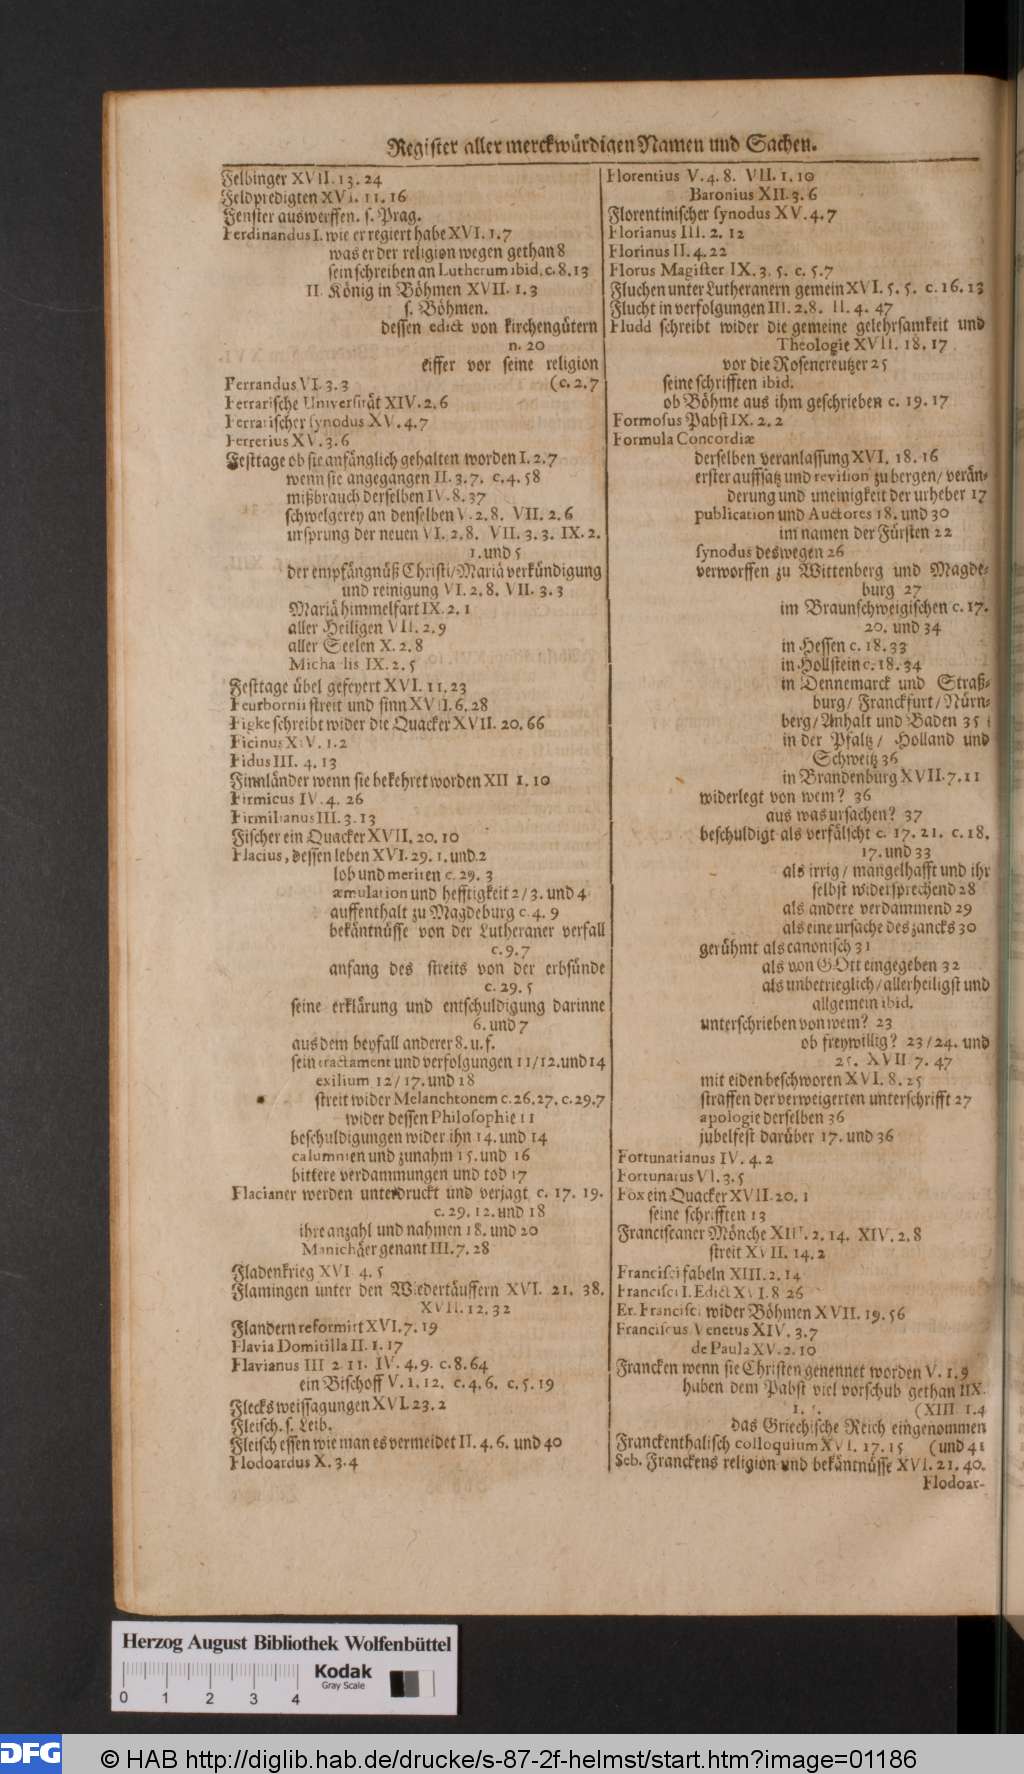 Register aller merckwürdigen Namen und Sachen.
Felbinger XVII. 13. 24
Feldpredigten XVI. 11. 16
Fenster auswerffen. s. Prag.
Ferdinandus I. wie er regiert habe XVI. 1. 7
was er der religion wegen gethan 8
sein schreiben an Lutherum ibid. c. 8. 13
II. König in Böhmen XVII. 1. 3
s. Böhmen.
dessen edict von kirchengütern
n. 20
eiffer vor seine religion
Ferrandus VI. 3. 3 (c. 2. 7
Ferrarische Universität XIV. 2. 6
Ferrarischer synodus XV. 4. 7
Ferretius XV. 3. 6
Festtage ob sie anfänglich gehalten worden I. 2. 7
wenn sie angegangen II. 3. 7. c. 4. 58
mißbrauch derselben IV. 8. 37
schwelgerey an denselben V. 2. 8. VII. 2. 6
ursprung der neuen VI. 2. 8. VII. 3. 3. IX. 2.
1. und 5
der empfängnüß Christi/ Mariä verkündigung
und reinigung VI. 2. 8. VII. 3. 3
Mariä himmelfart IX. 2. 1
aller Heiligen VII. 2. 9
aller Seelen X. 2. 8
Michaelis IX. 2. 5
Festtage übel gefeyert XVI. 11. 23
Feurbornii streit und sinn XVII. 6. 28
Figke schreibt wider die Quacker XVII. 20. 66
Ficinus XIV. 1. 2
Fidus III. 4. 13
Finnländer wenn sie bekehret worden XII 1. 10
Firmicus IV. 4. 26
Firmilianus III. 3. 13
Fischer ein Quacker XVII. 20. 10
Flacius, dessen leben XVI. 29. 1. und 2
lob und meriten c. 29. 3
æmulation und hefftigkeit 2/ 3. und 4
auffenthalt zu Magdeburg c. 4. 9
bekäntnüsse von der Lutheraner verfall
c. 9. 7
anfang des streits von der erbsünde
c. 29. 5
seine erklärung und entschuldigung darinne
6. und 7
aus dem beyfall anderer 8. u. f.
sein tractament und verfolgungen 11/ 12. und 14
exilium 12/ 17. und 18
streit wider Melanchtonem c. 26. 27. c. 29. 7
wider dessen Philosophie 11
beschuldigungen wider ihn 14. und 14
calumnien und zunahm 15. und 16
bittere verdammungen und tod 17
Flacianer werden unterdruckt und verjagt c. 17. 19.
c. 29. 12. und 18
ihre anzahl und nahmen 18. und 20
Manichäer genant III. 7. 28
Fladenkrieg XVI 4. 5
Flamingen unter den Wiedertäuffern XVI. 21. 38.
XVII. 12. 32
Flandern reformirt XVI. 7. 19
Flavia Domitilla II. 1. 17
Flavianus III 2 11. IV. 4. 9. c. 8. 64
ein Bischoff V. 1. 12. c. 4. 6. c. 5. 19
Flecks weissagungen XVI. 23. 2
Fleisch. s. Leib.
Fleisch essen wie man es vermeidet II. 4. 6. und 40
Flodoardus X. 3. 4
Florentius V. 4. 8. VII. 1. 10
Baronius XII. 3. 6
Florentinischer synodus XV. 4. 7
Florianus III. 2. 12
Florinus II. 4. 22
Florus Magister IX. 3. 5. c. 5. 7
Fluchen unter Lutheranern gemein XVI. 5. 5. c. 16. 13
Flucht in verfolgungen III. 2. 8. II. 4. 47
Fludd schreibt wider die gemeine gelehrsamkeit und
Theologie XVII. 18. 17
vor die Rosencreutzer 25
seine schrifften ibid.
ob Böhme aus ihm geschrieben c. 19. 17
Formosus Pabst IX. 2. 2
Formula Concordiæ
derselben veranlassung XVI. 18. 16
erster auffsatz und revision zu bergen/ verän-
derung und uneinigkeit der urheber 17
publication und Auctores 18. und 30
im namen der Fürsten 22
synodus deswegen 26
verworffen zu Wittenberg und Magde-
burg 27
im Braunschweigischen c. 17.
20. und 34
in Hessen c. 18. 33
in Hollstein c. 18. 34
in Dennemarck und Straß-
burg/ Franckfurt/ Nürn-
berg/ Anhalt und Baden 35
in der Pfaltz/ Holland und
Schweitz 36
in Brandenburg XVII. 7. 11
widerlegt von wem? 36
aus was ursachen? 37
beschuldigt als verfälscht c. 17. 21. c. 18.
17. und 33
als irrig/ mangelhafft und ihr
selbst widersprechend 28
als andere verdammend 29
als eine ursache des zancks 30
gerühmt als canonisch 31
als von GOtt eingegeben 32
als unbetrieglich/ allerheiligst und
allgemein ibid.
unterschrieben von wem? 23
ob freywillig? 23/ 24. und
25. XVII 7. 47
mit eiden beschworen XVI. 8. 25
straffen der verweigerten unterschrifft 27
apologie derselben 36
jubelfest darüber 17. und 36
Fortunatianus IV. 4. 2
Fortunatus VI. 3. 5
Fox ein Quacker XVII. 20. 1
seine schrifften 13
Franciscaner Mönche XIII. 2. 14. XIV. 2. 8
streit XVII. 14. 2
Francisci fabeln XIII. 2. 14
Francisci I. Edict XVI. 8 26
Er. Francisci wider Böhmen XVII. 19. 56
Franciscus Venetus XIV. 3. 7
de Paula XV. 2. 10
Francken wenn sie Christen genennet worden V. 1. 9
haben dem Pabst viel vorschub gethan IIX.
1. (XIII 1. 4
das Griechische Reich eingenommen
Franckenthalisch colloquium XVI. 17. 15 (und 41
Seb. Franckens religion und bekäntnüsse XVI. 21. 40.
Flodoar-
Herzog August Bibliothek Wolfenbüttel
Kodak
Gray Scale
0 1 2 3 4
DFG © HAB http://diglib.hab.de/drucke/s-87-2f-helmst/start.htm?image=01186